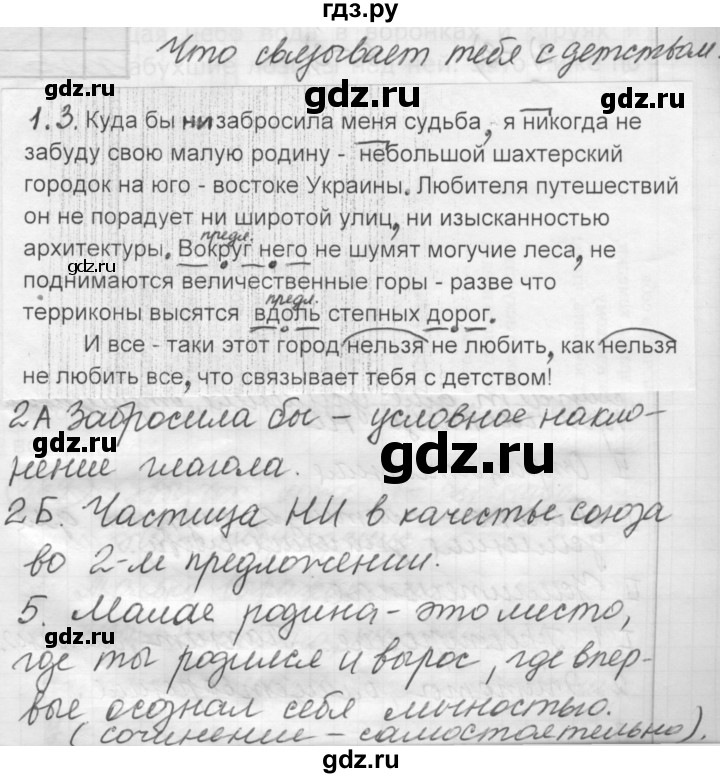 гдз.ру
Что связывает тебя с детством.
gdz.ru gdz.ru
1.3. Куда бы ни забросила меня судьба, я никогда не
забуду свою малую родину - небольшой шахтерский
городок на юго - востоке Украины. Любителя путешествий
он не порадует ни широтой улиц, ни изысканностью
предл.
архитектуры. Вокруг него не шумят могучие леса, не
gdz.ru
поднимаются величественные горы - разве что
предл.
терриконы высятся вдоль степных дорог.
И все - таки этот город нельзя не любить, как нельзя
не любить все, что связывает тебя с детством!
2А Забросила бы – условное накло-
нение глагола.
gdz.ru
2Б. Частица НИ в качестве союза
gdz.ru
во 2-м предложении.
5. Малая родина – это место,
gdz.ru gdz.ru
где ты родился и вырос, где впер-
вые осознал себя личностью.
(сочинение – самостоятельно).
gdz.ru